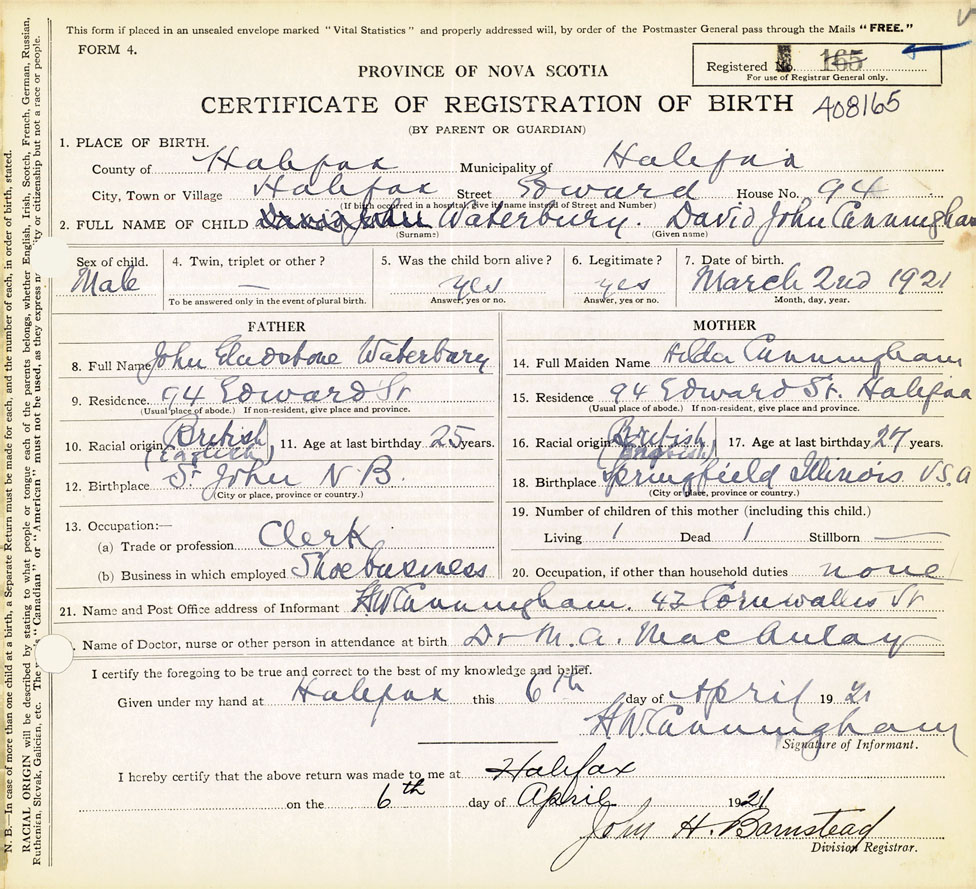 This form if placed in an unsealed envelope marked "Vital Statistics" and properly addressed will, by order of the Postmaster General pass through the Mails "FREE."
FORM 4.
Registered No. 165
For use of Registrar General only.
PROVINCE OF NOVA SCOTIA
CERTIFICATE OF REGISTRATION OF BIRTH 408165
(BY PARENT OR GUARDIAN)
1. PLACE OF BIRTH.
County of Halifax Municipality of Halifax
City, Town or Village Halifax Street Edward House No. 94
(If birth occurred in a hospital, give it name instead of Street and Number)
2. FULL NAME OF CHILD Waterbury. David John Cunningham
(Surname) (Given name)
Sex of child. 4. Twin, triplet or other? 5. Was the child born alive? 6. Legitimate? 7. Date of birth.
Male — yes yes March 2nd 1921
To be answered only in the event of plural birth. Answer, yes or no. Answer, yes or no. Month, day, year.
FATHER
8. Full Name John Gladstone Waterbury
9. Residence. 94 Edward St
(Usual place of abode.) If non-resident, give place and province.
10. Racial origin British (English) 11. Age at last birthday 25 years.
12. Birthplace St John N B.
(City or place, province or country.)
13. Occupation:—
(a) Trade or profession Clerk
(b) Business in which employed Shoe business
MOTHER
14. Full Maiden Name Hilda Cunningham
15. Residence 94 Edward St. Halifax
(Usual place of abode.) If non-resident, give place and province.
16. Racial origin British (English) 17. Age at last birthday 27 years.
18. Birthplace Springfield Illinois U.S.A
(City or place, province or country.)
19. Number of children of this mother (including this child.)
Living 1 Dead 1 Stillborn —
20. Occupation, if other than household duties none
21. Name and Post Office address of Informant H W Cunningham. 43 Cornwallis St
. Name of Doctor, nurse or other person in attendance at birth Dr M. A. MacAulay
I certify the foregoing to be true and correct to the best of my knowledge and belief.
Given under my hand at Halifax this 6th day of April 1921
H W Cunningham
Signature of Informant.
I hereby certify that the above return was made to me at Halifax
on the 6th day of April 1921
John H. Barnstead
Division Registrar.
N. B.—In case of more than one child at a birth, a Separate Return must be made for each, and the number of each, in order of birth, stated.
RACIAL ORIGIN will be described by stating to what people or tongue each of the parents belongs, whether English, Irish, Scotch, French, German, Russian,
Ruthenian, Slovak, Galician, etc. The "Canadian" or "American" must not be used, as they express n ty or citizenship but not a race or people.